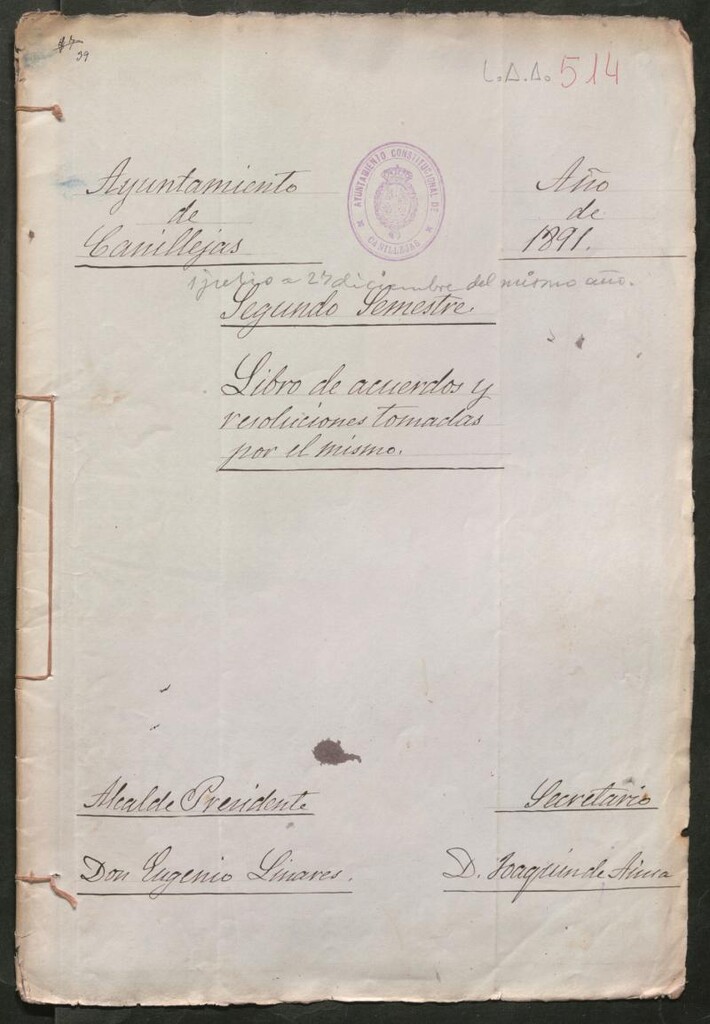 39
L.A.A. 514
Ayuntamiento
de
Canillejas
AYUNTAMIENTO CONSTITUCIONAL DE
CANILLEJAS
Año
de
1891.
1 julio a 27 diciembre del mismo año.
Segundo Semestre.
Libro de acuerdos y
resoluciones tomadas
por el mismo.
Alcalde Presidente
Secretario
Don Eugenio Linares.
D. Joaquin de